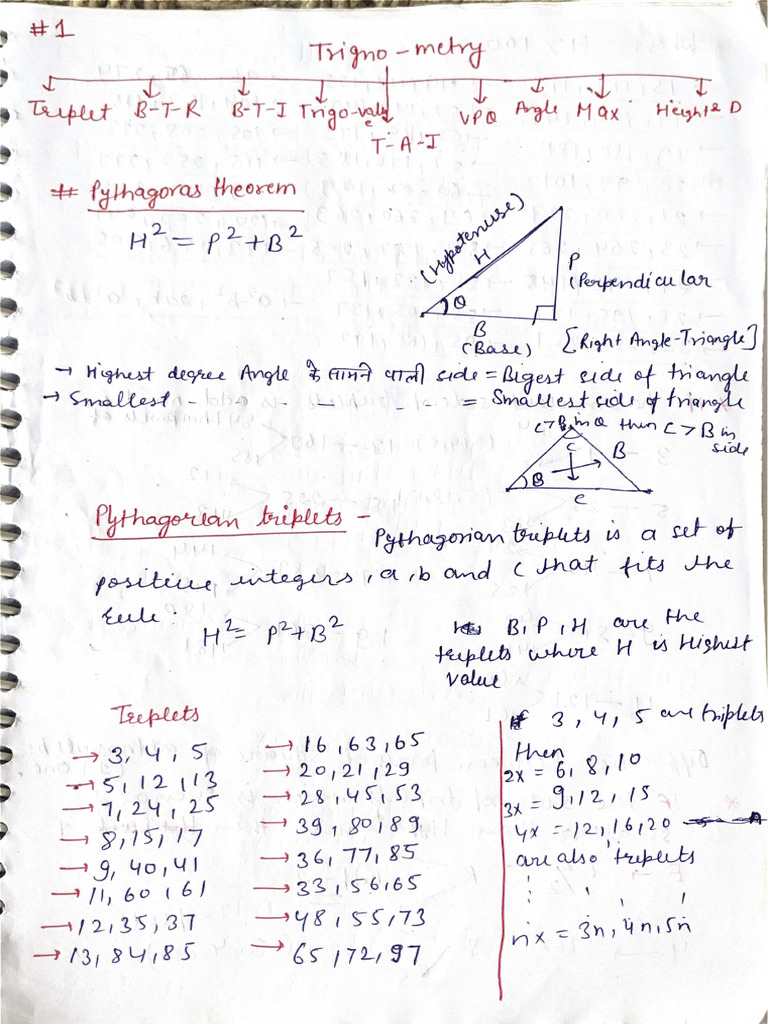 #1
Trigno-metry
Triplet B-T-R B-T-I Trigo-value T-A-I VPQ Angle Max Height & D
# Pythagoras theorem
H² = P² + B²
(Hypotenuse)
H
P
(Perpendicular
θ
B
(Base)
[Right Angle-Triangle]
→ Highest degree Angle के सामने वाली side = Bigest side of triangle
→ Smallest - - - - - = Smallest side of triangle
C > B in θ then C > B in side
C
B
B
c
Pythagorean triplets - Pythagorian triplets is a set of
positive integers, a, b and c that fits the
rule:
H² = P² + B²
B, P, H are the
triplets where H is Highest
value
Treplets
→ 3, 4, 5
→ 5, 12, 13
→ 7, 24, 25
→ 8, 15, 17
→ 9, 40, 41
→ 11, 60, 61
→ 12, 35, 37
→ 13, 84, 85
→ 16, 63, 65
→ 20, 21, 29
→ 28, 45, 53
→ 39, 80, 89
→ 36, 77, 85
→ 33, 56, 65
→ 48, 55, 73
→ 65, 72, 97
If 3, 4, 5 are triplets
then
2x = 6, 8, 10
3x = 9, 12, 15
4x = 12, 16, 20
are also triplets
nx = 3n, 4n, 5n